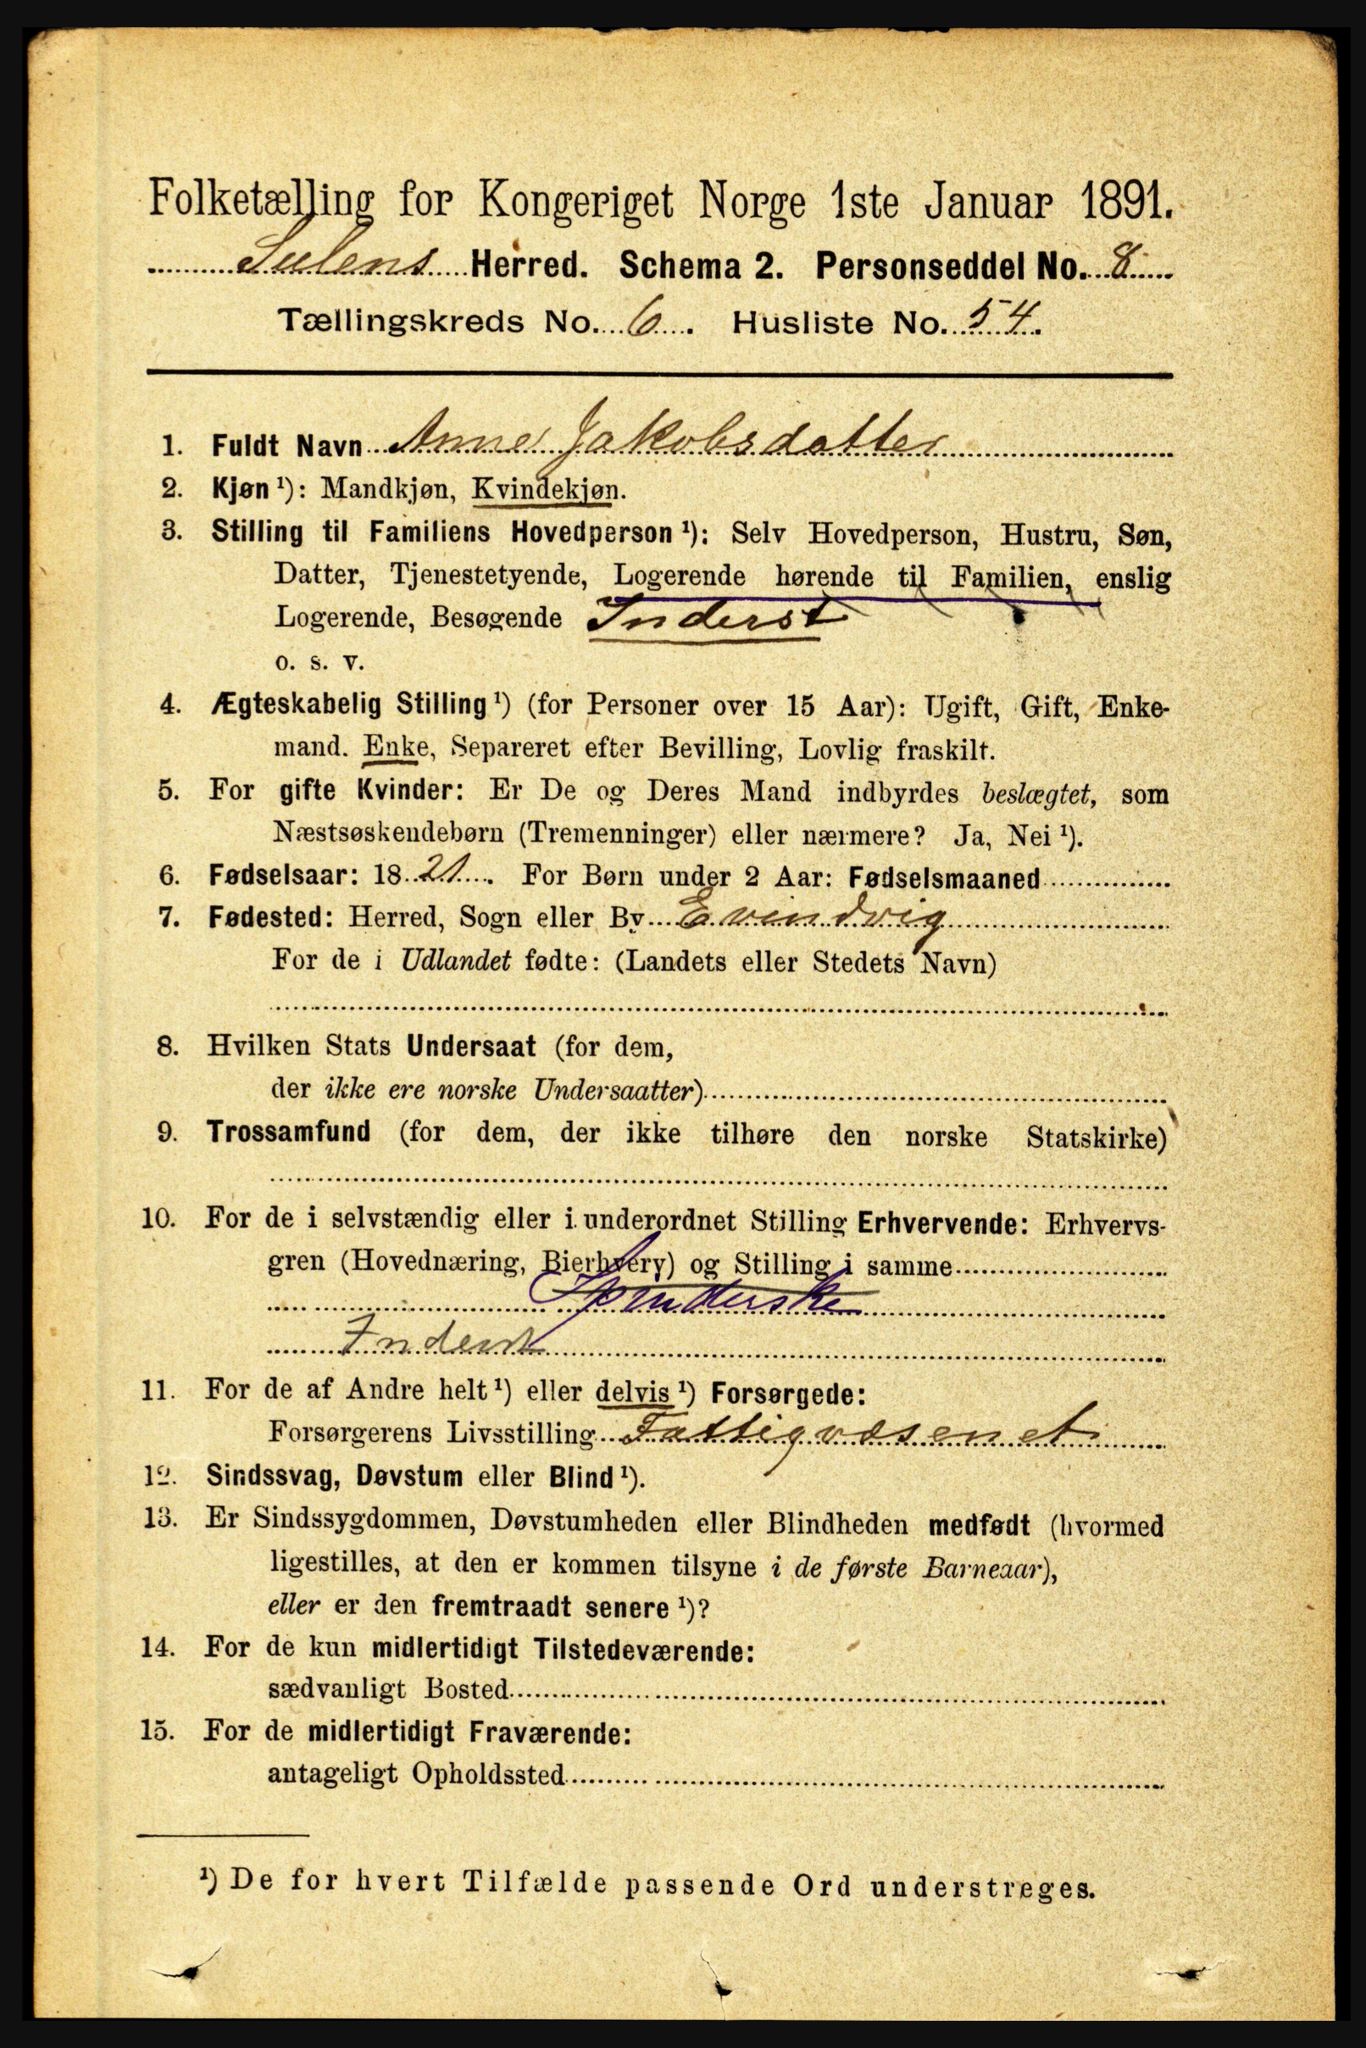 Folketælling for Kongeriget Norge 1ste Januar 1891.
Sulens Herred. Schema 2. Personseddel No. 8
Tællingskreds No. 6. Husliste No. 54.
1. Fuldt Navn Anne Jakobsdatter
2. Kjøn ¹): Mandkjøn, Kvindekjøn.
3. Stilling til Familiens Hovedperson ¹): Selv Hovedperson, Hustru, Søn,
Datter, Tjenestetyende, Logerende hørende til Familien, enslig
Logerende, Besøgende Inderst
o. s. v.
4. Ægteskabelig Stilling ¹) (for Personer over 15 Aar): Ugift, Gift, Enke-
mand. Enke, Separeret efter Bevilling, Lovlig fraskilt.
5. For gifte Kvinder: Er De og Deres Mand indbyrdes beslægtet, som
Næstsøskendebørn (Tremenninger) eller nærmere? Ja, Nei ¹).
6. Fødselsaar: 1821. For Børn under 2 Aar: Fødselsmaaned
7. Fødested: Herred, Sogn eller By Evindvig
For de i Udlandet fødte: (Landets eller Stedets Navn)
8. Hvilken Stats Undersaat (for dem,
der ikke ere norske Undersaatter)
9. Trossamfund (for dem, der ikke tilhøre den norske Statskirke)
10. For de i selvstændig eller i underordnet Stilling Erhvervende: Erhvervs-
gren (Hovednæring, Bierhverv) og Stilling i samme
Spinderske
Inderst
11. For de af Andre helt ¹) eller delvis ¹) Forsørgede:
Forsørgerens Livsstilling Fattigvæsenet
12. Sindssvag, Døvstum eller Blind ¹).
13. Er Sindssygdommen, Døvstumheden eller Blindheden medfødt (hvormed
ligestilles, at den er kommen tilsyne i de første Barneaar),
eller er den fremtraadt senere ¹)?
14. For de kun midlertidigt Tilstedeværende:
sædvanligt Bosted
15. For de midlertidigt Fraværende:
antageligt Opholdssted
¹) De for hvert Tilfælde passende Ord understreges.